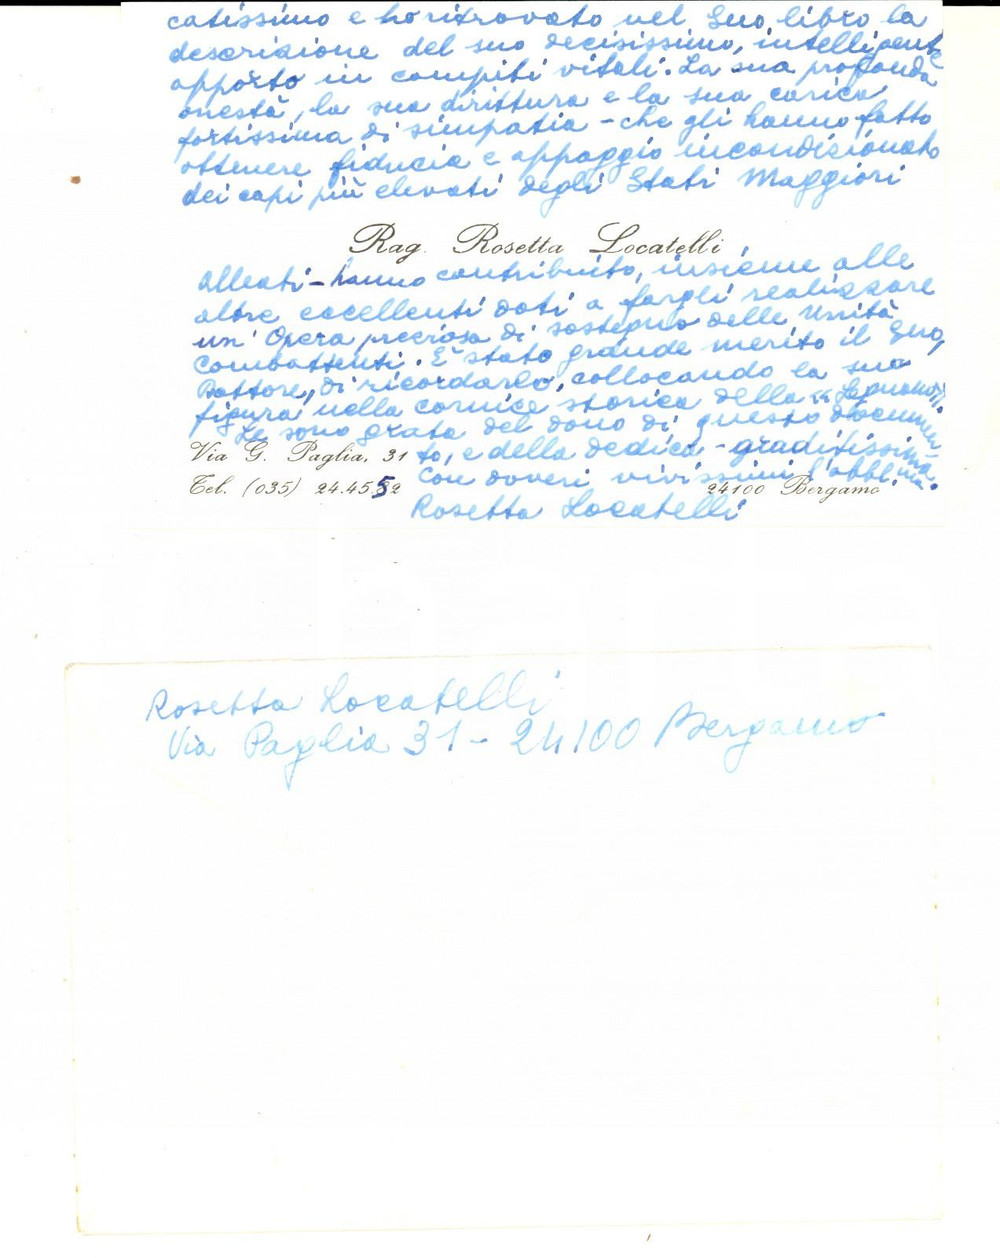 catissimo e ho ritrovato nel Suo libro la
descrizione del suo decisissimo, intelligente
apporto in compiti vitali. La sua profonda
onestà, la sua dirittura e la sua carica
fortissima di simpatia - che gli hanno fatto
ottenere fiducia e appoggio incondizionato
dei capi più elevati degli Stati Maggiori
Rag. Rosetta Locatelli
Alleati - hanno contribuito, insieme alle
altre eccellenti doti a fargli realizzare
un' Opera preziosa di sostegno delle Unità
Combattenti. È stato grande merito il Suo,
Dottore, di ricordarlo, collocando la sua
figura nella cornice storica della « Legnano».
Le sono grata del dono di questo documen
Via G. Paglia, 31 to, e della dedica - graditissima.
Tel. (035) 24.4552 Con doveri vivissimi l'obbl.ma
24100 Bergamo
Rosetta Locatelli
Rosetta Locatelli
Via Paglia 31 - 24100 Bergamo